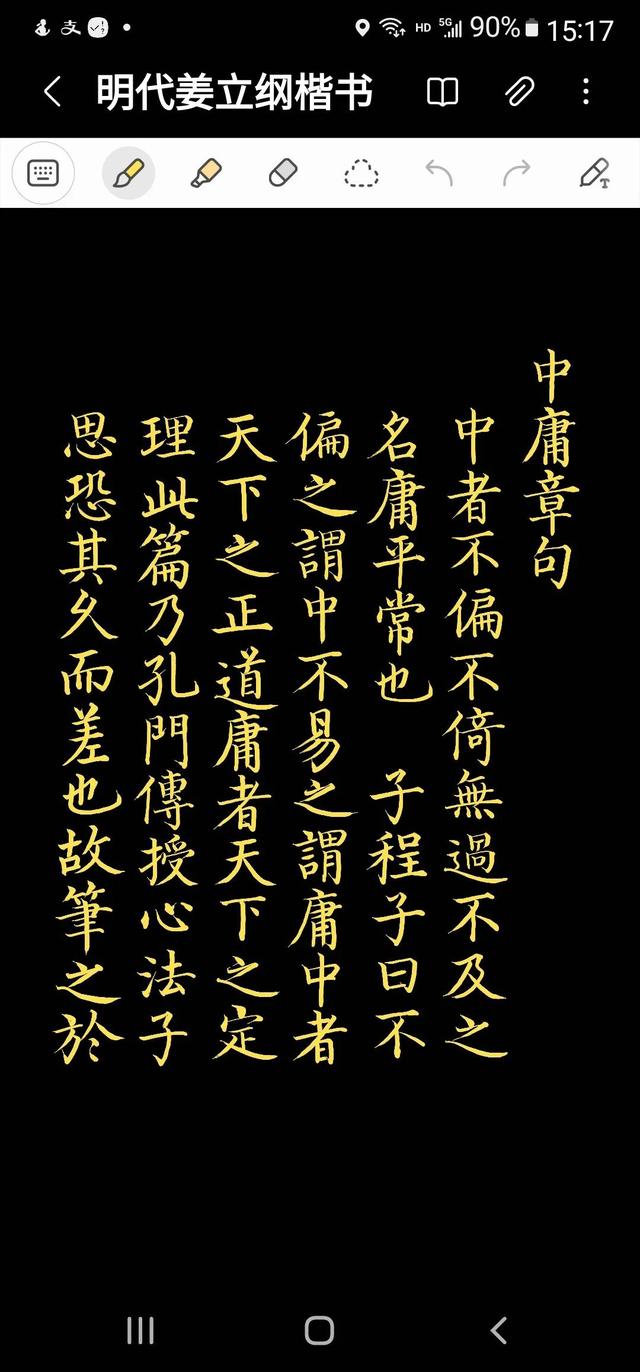 HD 5G 90% 15:17
明代姜立纲楷书
中庸章句
中者不偏不倚無過不及之
名庸平常也 子程子曰不
偏之謂中不易之謂庸中者
天下之正道庸者天下之定
理此篇乃孔門傳授心法子
思恐其久而差也故筆之於